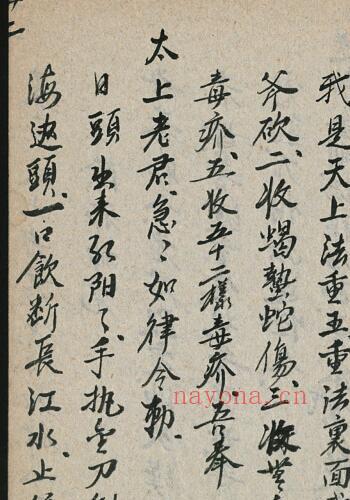 我是天上法重五重法裏面
斧砍二收蝎蟄蛇傷三收
毒疥五收五十二樣毒疥吾奉
太上老君急〻如律令勅
日頭出来紅陽〻手执金刀
海边頭一口飲断長江水止
nayona.cn